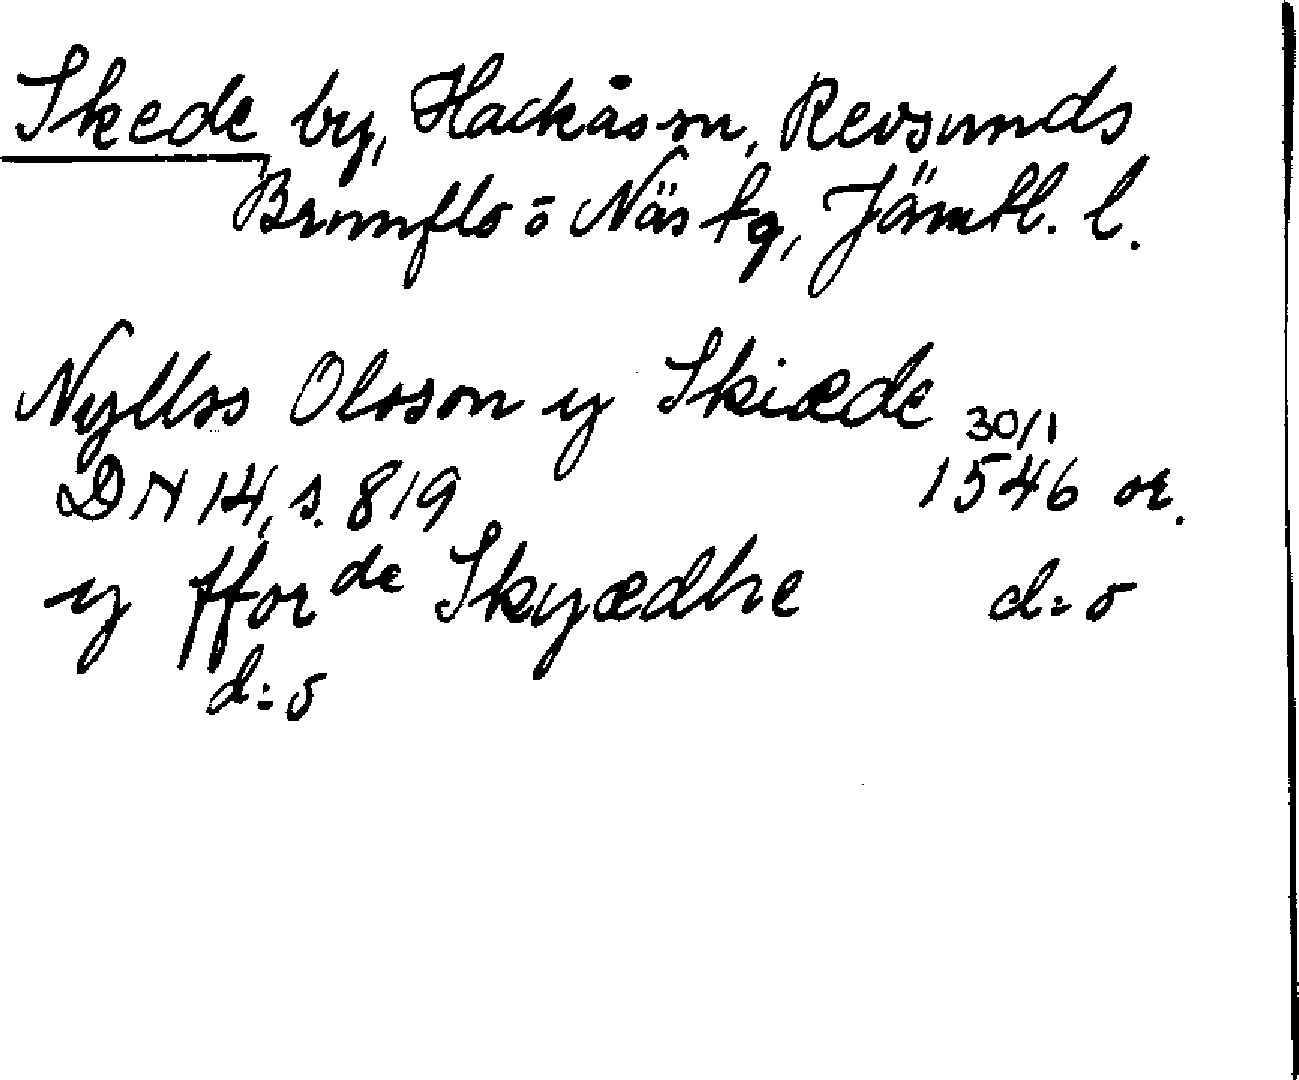 Skede by, Hackås sn, Revsunds
Brunflo o Näs tg, Jämtl. l.
Nyllss Olsson y Skiæde 30/1
DN 14, s. 819 1546 or.
y ffor de Skyædhe d:o
d:o